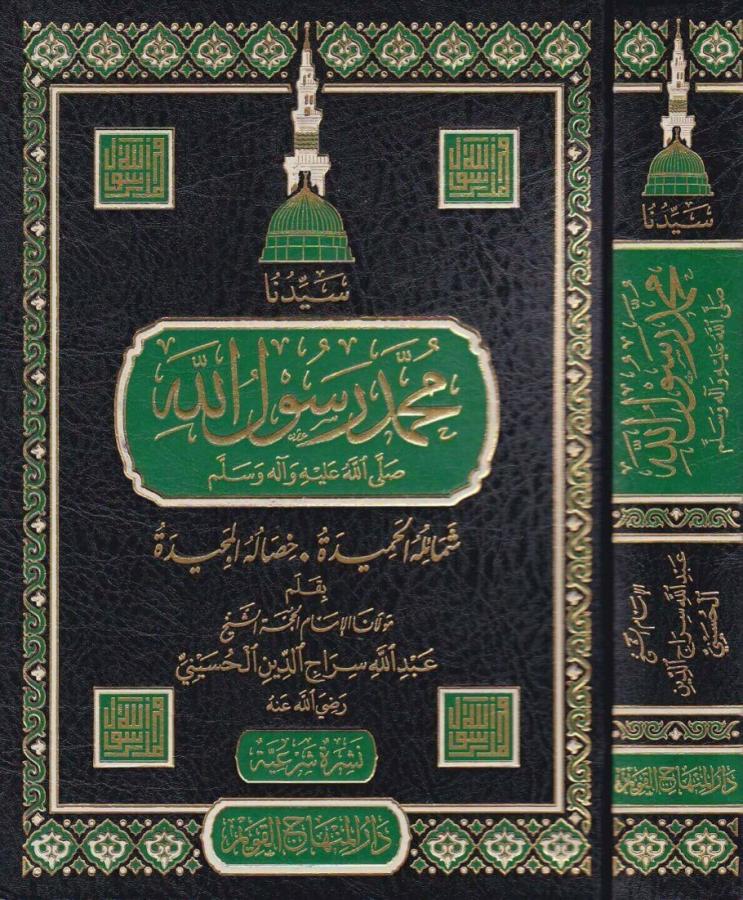 سَيِّدُنَا
مُحَمَّدٌ رَسُوْلُ اللهِ
صَلَّى اللهُ عَلَيْهِ وَآلِهِ وَسَلَّم
شَمَائِلُهُ الحَمِيدَةُ . خِصَالُهُ المَجِيدَةُ
بِقَلَم
مَولَانَا الإِمَام الحُجَّة الشَّيْخ
عَبْدِ اللهِ سِرَاجِ الدِّينِ الحُسَيْنِيِّ
رَضِيَ اللهُ عَنْهُ
نَشْرَةٌ شَرْعِيَّة
دَارُ المِنْهَاجِ القَوِيْم
سَيِّدُنَا
مُحَمَّدٌ رَسُوْلُ اللهِ
صَلَّى اللهُ عَلَيْهِ وَآلِهِ وَسَلَّم
الإِمَام الشَّيْخ
عَبْدِ اللهِ سِرَاجِ الدِّينِ
الحُسَيْنِيِّ
دَارُ المِنْهَاجِ القَوِيْم